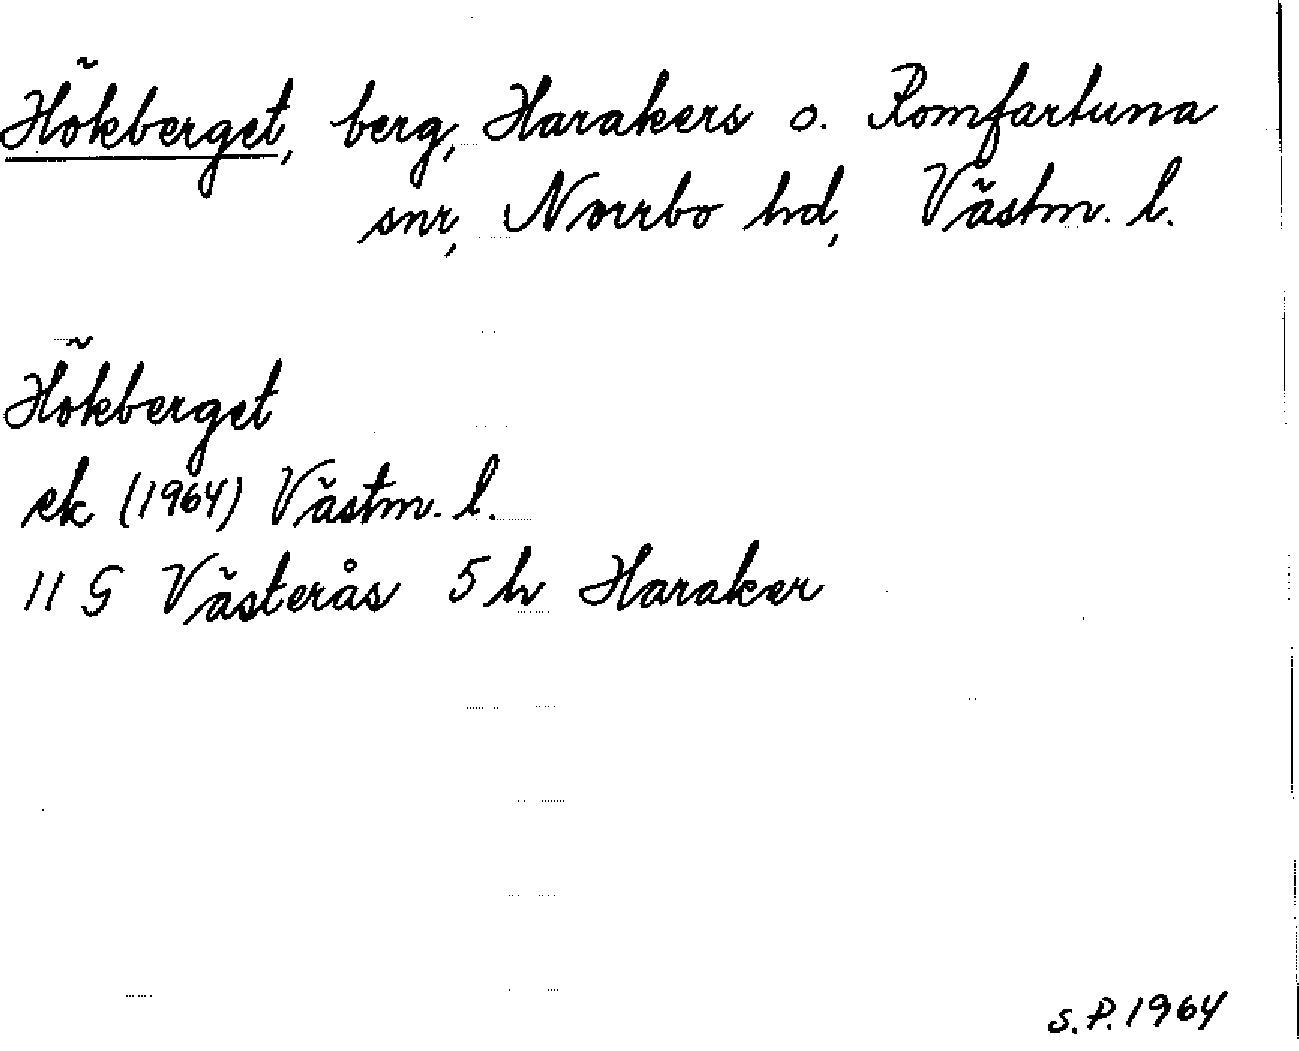 Hökberget, berg, Harakers o. Romfartuna
snr, Norrbo hd, Västm. l.
Hökberget
ek (1964) Västm. l.
11 G Västerås 5 h Haraker
S.P. 1964